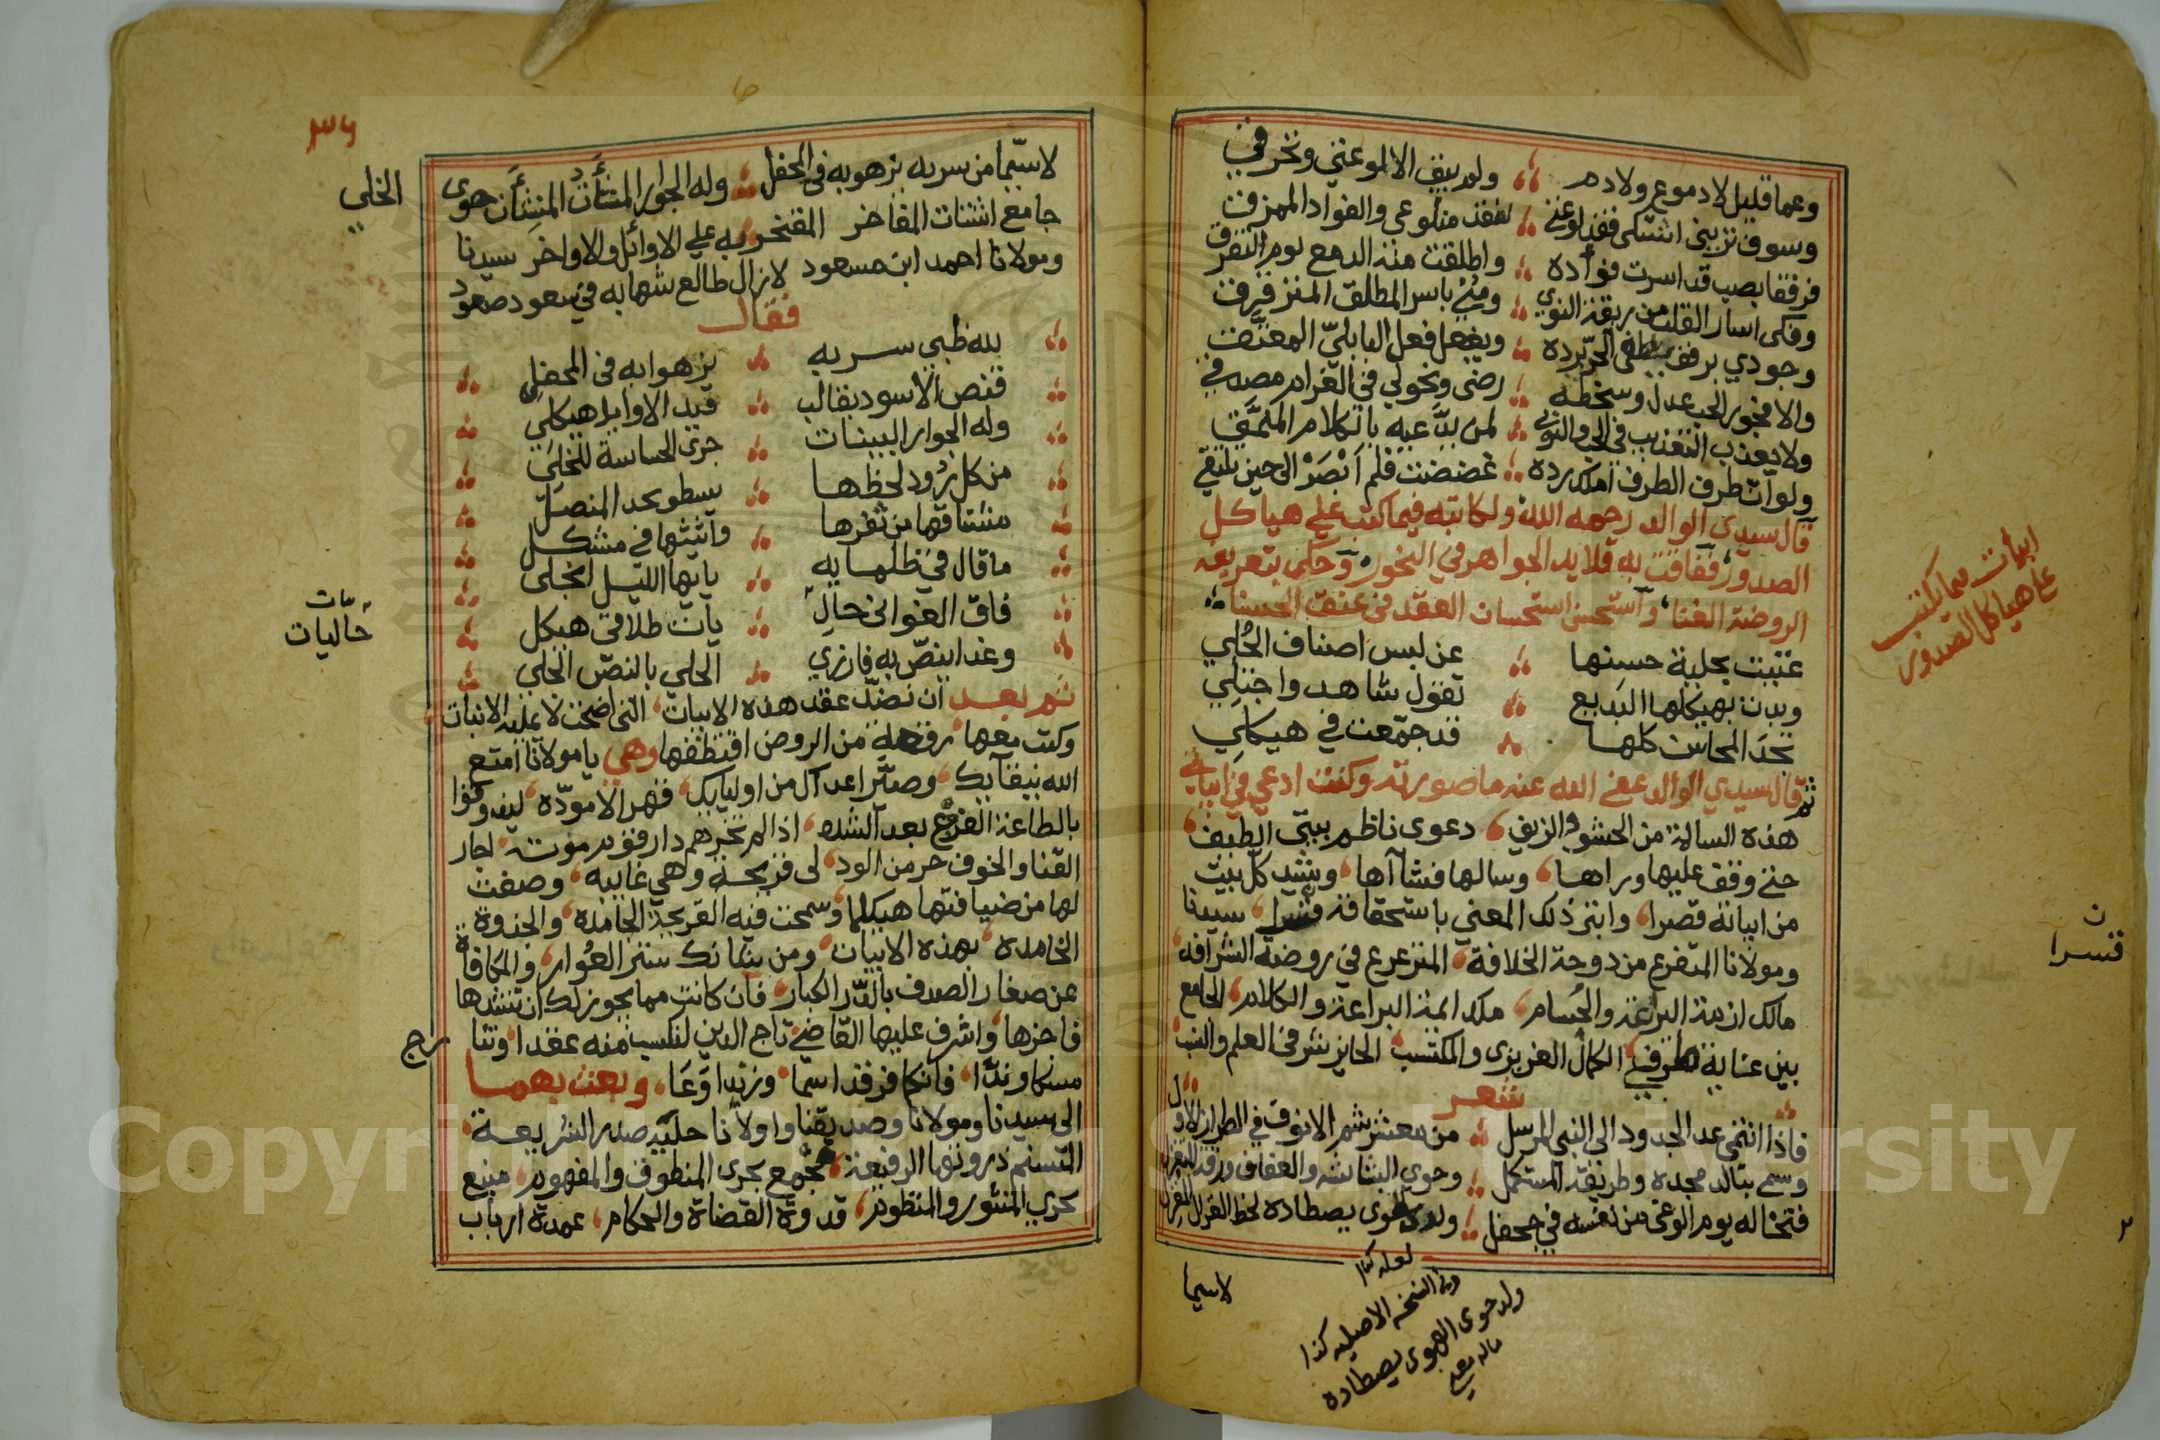 وعما قليل لا دموع ولا دم ولم يبق الا لوعتي وتحرقي
وسوف تريني اشتكى فقد لوعتي لفقد متلوعي والفواد الممزق
فرفقا بصب قد اسرت فوأده واطلقت منه الدمع يوم التفرق
وفكى اسار القلب من ربقة النوى ومُنّي باسر المطلق المترقرق
وجودي برفق يطفى الحر برده ويفعل فعل البابليّ المعتّق
والا فجور الحب عدل وسخطه رضى ونحولي في الغرام مصدقي
ولا يعذب التعذيب في الحب والنوى لمن يدَّعيه بالكلام المنمَّق
ولو ان طرف الطرف املك رده غضضت فلم اَبْصَرْ الى حين نلتقي
قال سيدى الوالد رحمه الله ولكاتبه فيما كتب على هياكل
الصدور ففاقت به قلايد الجواهر في النحور وحكى بتعريفه
الروضة الغنا واستحسن استحسان العقد في عنق الحسنا
غنيت بحلية حسنها عن لبس اصناف الحُلي
وبدت بهيكلها البديع تقول شاهد واجتلي
تجد المحاسن كلها قد جمّعت في هيكلي
ثم قال سيدي الوالد عفى الله عنه ما صورته وكنت ادعي في ابياتي
هذه السالمة من الحشو والزيف دعوى ناظم بيتى الطيف
حتى وقف عليها وراها وسالها فشاآها وشيد كل بيت
من ابياته قصرا وابتز ذلك المعني باستحقاقه سيدنا
ومولانا المتفرع من دوحة الخلافة المترعرع في روضة الشرافة
مالك ازمة البراعة والحُسام ملك ائمة البراعة والكلام الجامع
بين عناية طرفي الكمال الغريزى والمكتسب الحايز شرفى العلم والنسب
شعر
فاذا انتمى عد الجدود الى النبي المرسل من معشر شم الانوف في الطراز الاول
وسم بتالد مجده وطريقه المستكمل وحوى البشاشه والعفاف
فتخاله يوم الوغى من نفسه في جحفل وله الهوى يصطاده لحظ الغزال
ابيات مما يكتب
على هياكل الصدور
ن
قسرا
لاسيما
لعله كذا
وفي النسخه الاصليه كذا
ولد حوى الهوى يصطاده
٣٦
لاسيّما من سربه يزهو به فى المحفل وله الجوار المنشأت المنشِأن حوى
الخلي
جامع اشتات المفاخر المفتخر به على الاوائل والاواخر سيدنا
ومولانا احمد ابن مسعود لازال طالع شهابه في سعود صعود
فقال
لله ظبي سربه يزهوا به فى المحفل
قنص الأسود بقالب قيد الاوابد هيكلي
وله الجوار البينات جرى الحاسة للخلي
من كل رُود لحظها يسطو بحد المنصل
مشتاقها من ثغرها واثيثها في مشكل
ما قال في ظلمايه يايها الليل انجلى
فاق الغوانى حالِ يات طلا في هيكل
حاليات
وغدا ينصّ به فازري الحلي بالنصّ الخلي
ثم بعد ان نضّد عقد هذه الابيات التى اضحت لا يمليه الاثبات
وكتب معها رقعة من الروض اقتطفها وهي يا مولانا امتع
الله ببقآيك وصيّر اعداك من اوليايك فهم الا مودّه ليفروتوا
بالطاعة الفزع بعد الشده اذا لم تخبرهم دار فوم مؤنه لجار
القنا والخوف حر من الود لى قريحة وهي غايبه وصفت
لها من ضيافتها هيكلا وسمحت فيه القريحة الجامدة والجذوة
الخامده بهذه الابيات ومن شانك ستر العُوار والمكافاة
عن صغار الصدف بالدّر الكبار فان كانت مما يجوز لك ان تنشدها
فاخزها واشرف عليها القاضى تاج الدين لنكسب منه عقدا وتتا
رج
مسكا وندّا فانكما فرقد اسما وزندا وَعَا وبعث بهما
الى سيدنا ومولانا وصديقنا واولانا حلية صدر الشريعة
المتسنم ذروتها الرفيعة مجمع بحرى المنطوق والمفهوم منبع
بحري المنثور والمنظوم قدوة القضاة والحكام عمدة ارباب